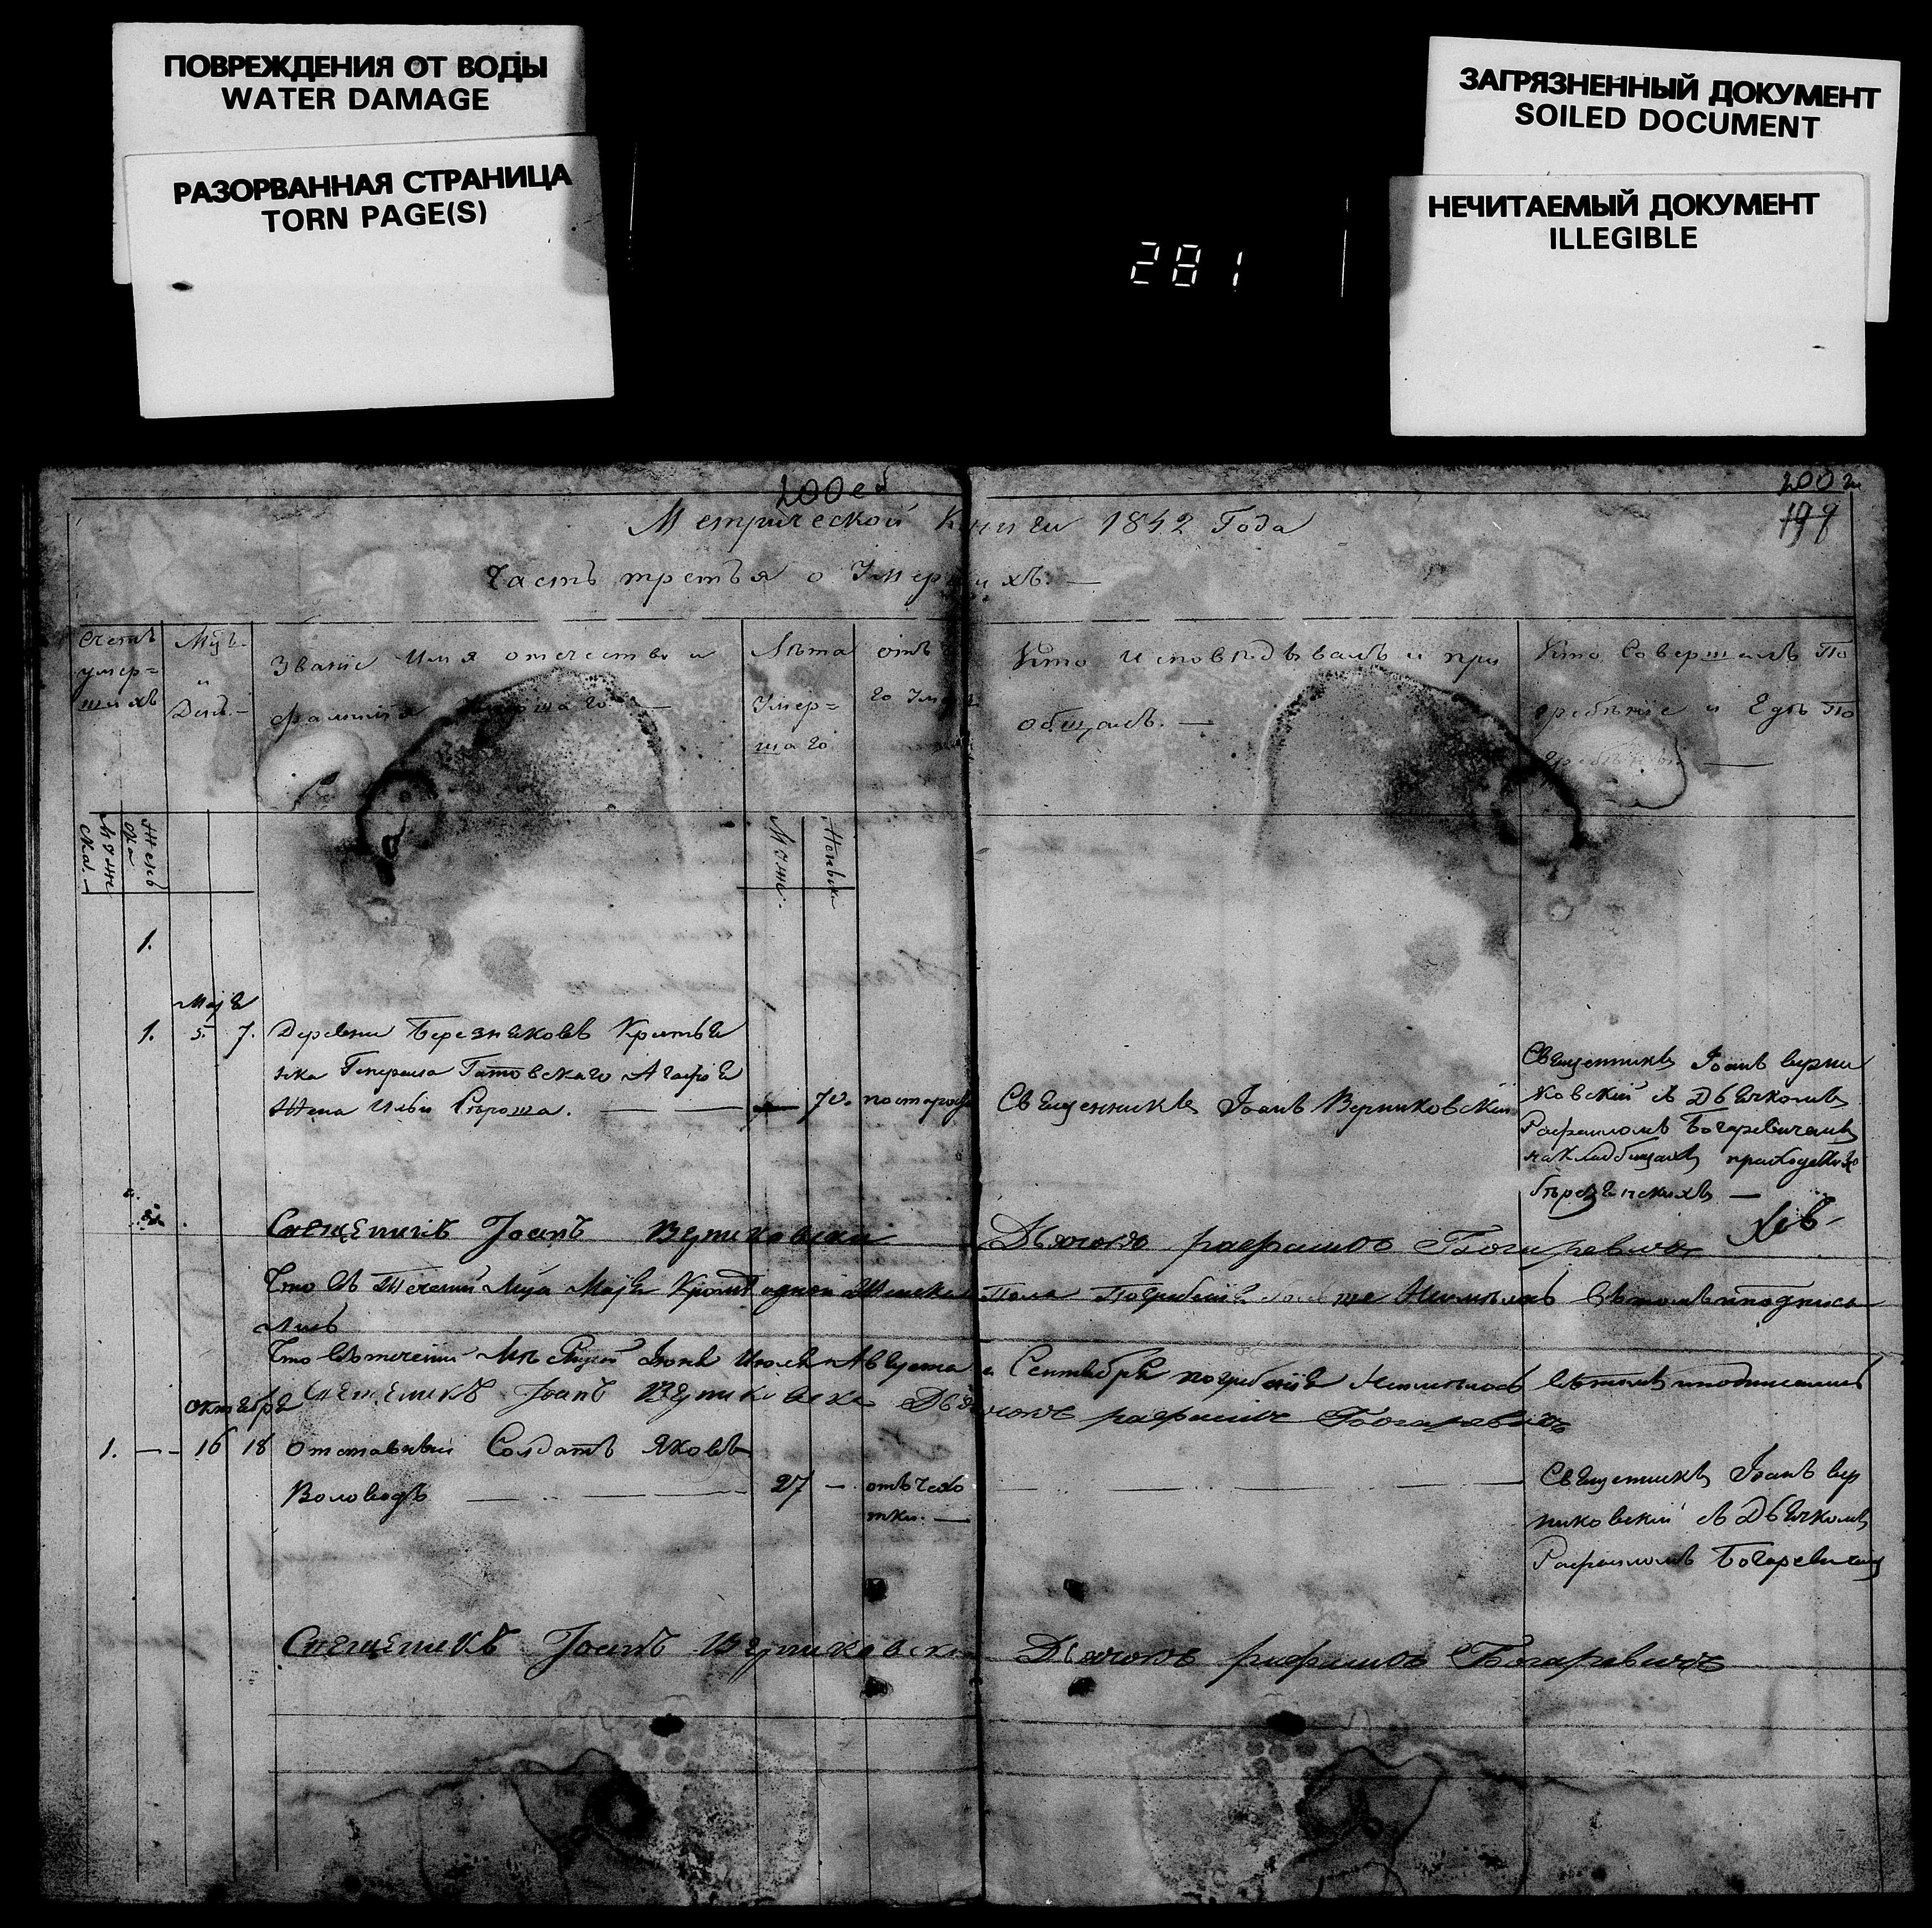 ПОВРЕЖДЕНИЯ ОТ ВОДЫ
WATER DAMAGE
РАЗОРВАННАЯ СТРАНИЦА
TORN PAGE(S)
ЗАГРЯЗНЕННЫЙ ДОКУМЕНТ
SOILED DOCUMENT
НЕЧИТАЕМЫЙ ДОКУМЕНТ
ILLEGIBLE
281
200об
200
199
Метрической Книги 1842 Года
Часть третья о Умершихъ. —
Счетъ
умер=
шихъ
Мцъ
и
День. —
Званіе Имя отечество и
фамилія Умершаго —
Лѣта
Умер=
шаго
отъ
Кто исповѣдывалъ и при
общалъ. —
Кто Совершалъ По
гребеніе и Гдѣ По
гребены —
Муже
ска. —
Женс
ка
Муже.
Женска
1.
Маія
1. 5. 7. Деревни Березняковъ Крестья
нка Генерала Гатовскаго Агафія
Жена Ильи Сороша. — 70. по старос
Священникъ Іоанъ Верниковскій
Священникъ Іоанъ Верни
ковскій съ Дьячкомъ
Рафаиломъ Богаревичемъ
на Кладбищахъ приходскихъ
—
Священикъ Іоанъ Верниковски Дьячокъ рафаилъ Богаревичъ
Что въ течении Мца Маія Кромѣ одной Женска Пола Погребенія больше Неимѣлось въ томъ подписа
лись
Что въ течении Мѣсяцей Іюня Июля Августа и Сентября погребенія Неимѣлось въ томъ подписались
Священикъ Іоанъ Верниковски Дьячокъ рафаилъ Богаревичъ
октября
1. — - 16 18 Отставный Солдатъ Яковъ
Воловодъ — 27 — отъ чахо
тки. —
Священикъ Іоанъ Вер
никовский съ Дьячкомъ
Рафаиломъ Богаревичемъ
Священикъ Іоанъ Верниковски Дьячокъ рафаилъ Богаревичъ